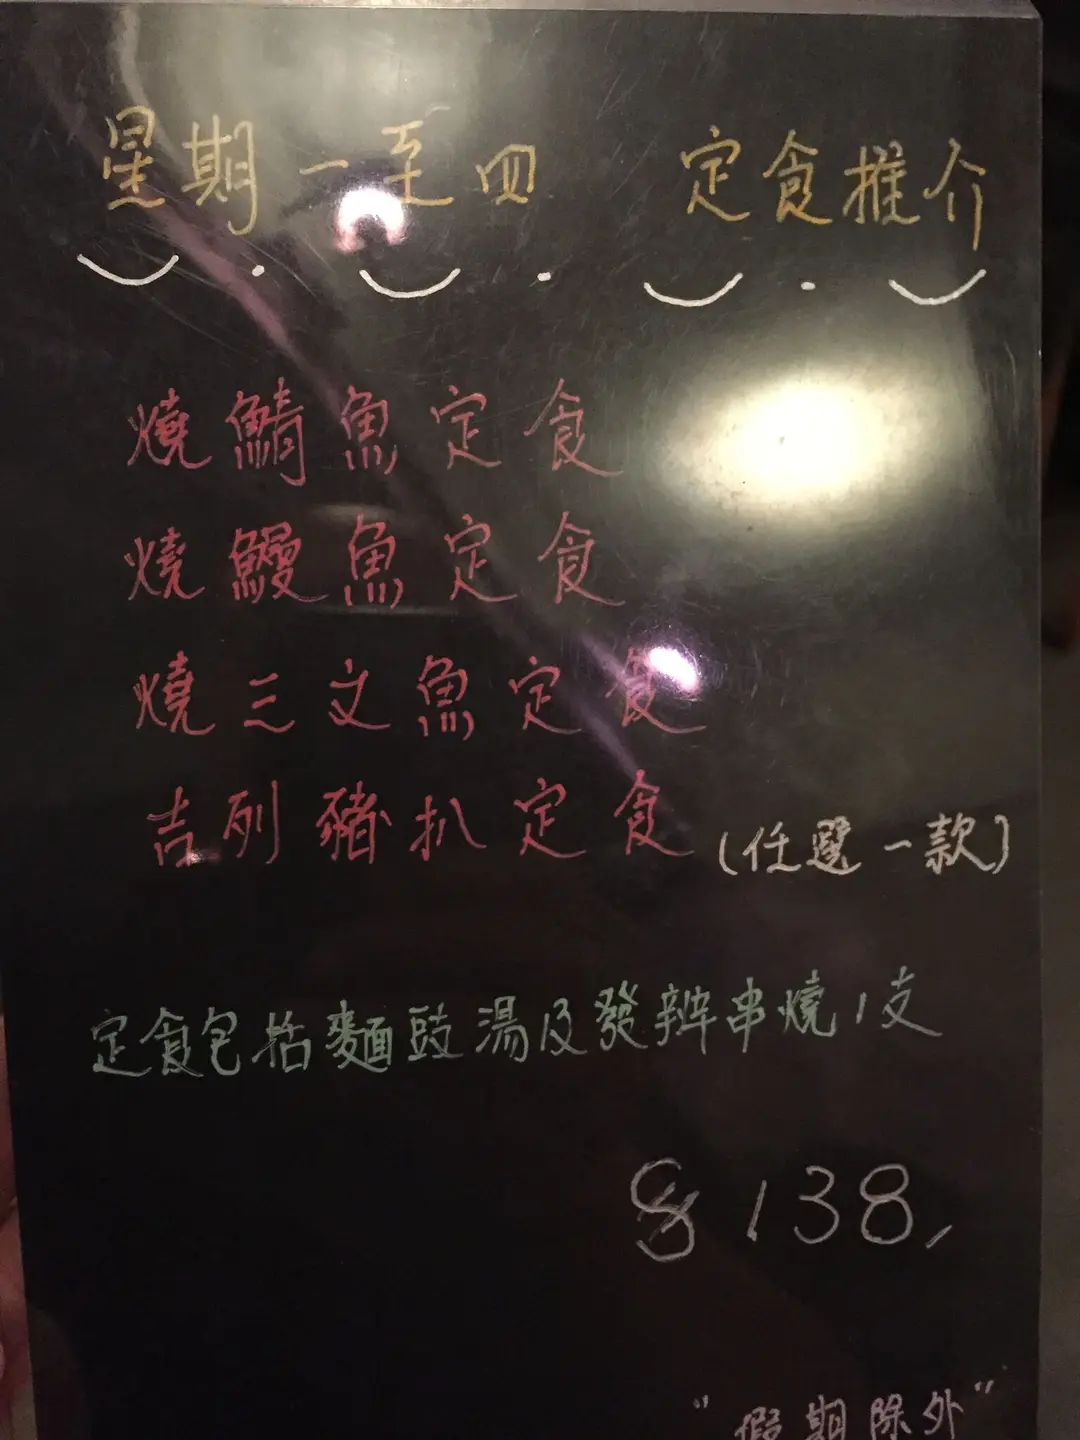 星期一至四 定食推介
燒鯖魚定食
燒鰻魚定食
燒三文魚定食
吉列豬扒定食 (任選一款)
定食包括麵豉湯及發辦串燒1支
$138,
"假期除外"